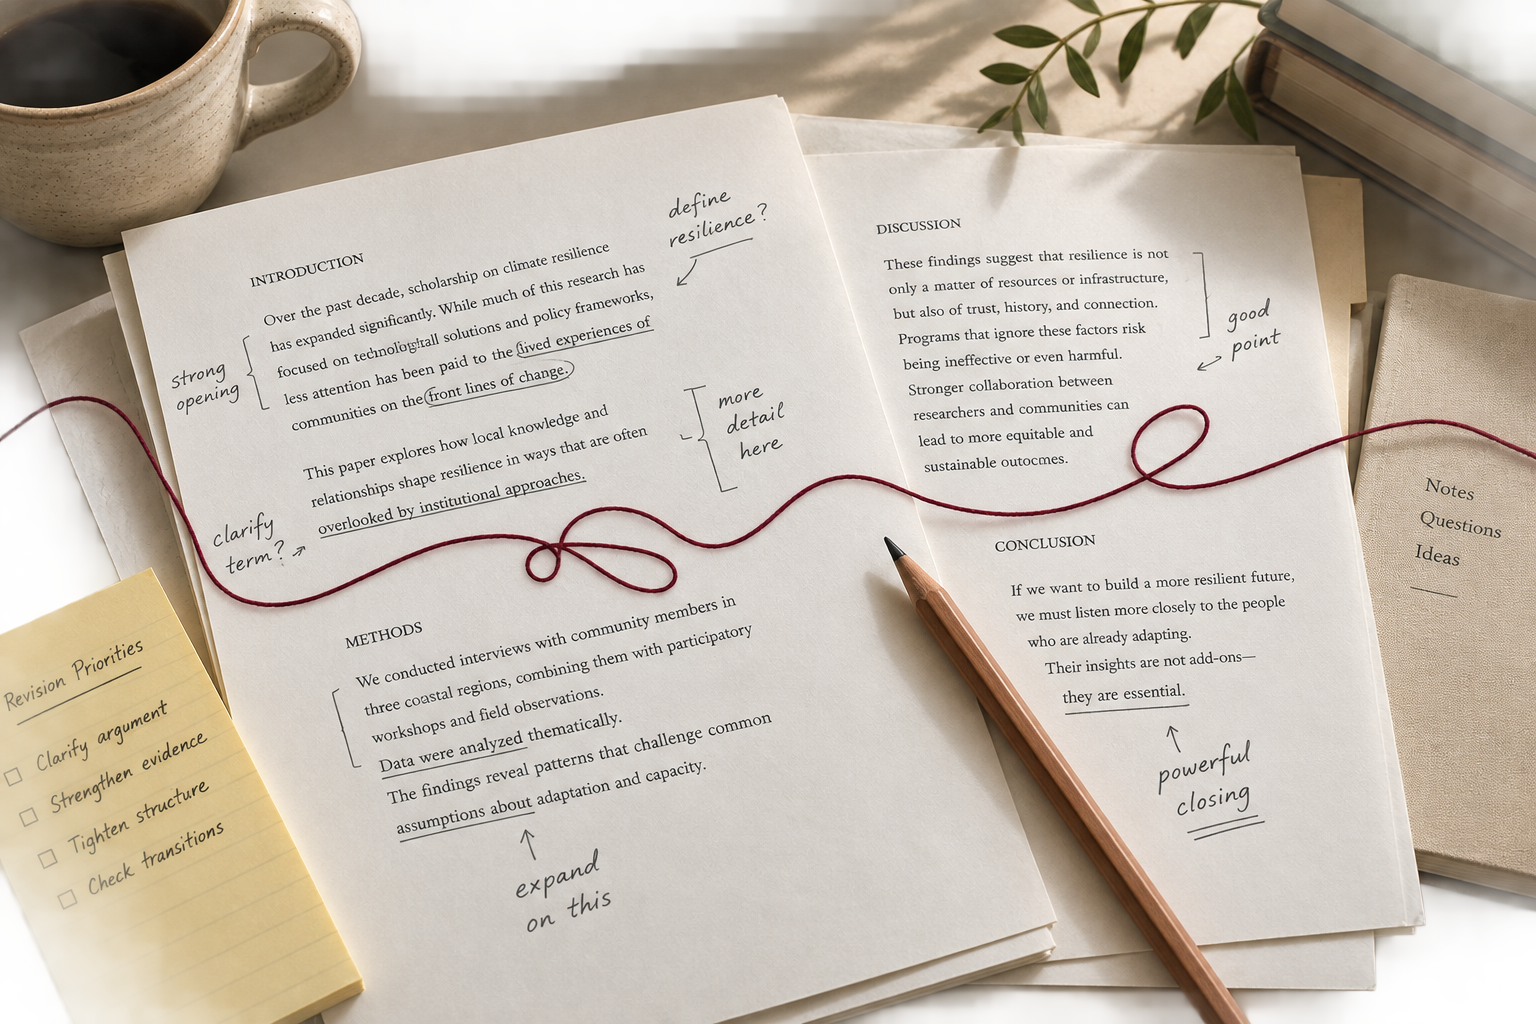 INTRODUCTION
Over the past decade, scholarship on climate resilience
has expanded significantly. While much of this research has
focused on solutions and policy frameworks,
less attention has been paid to the lived experiences of
communities on the front lines of change.
This paper explores how local knowledge and
relationships shape resilience in ways that are often
overlooked by institutional approaches.
define
resilience?
strong
opening
more
detail
here
clarify
term?
METHODS
We conducted interviews with community members in
three coastal regions, combining them with participatory
workshops and field observations.
Data were analyzed thematically.
The findings reveal patterns that challenge common
assumptions about adaptation and capacity.
expand
on this
DISCUSSION
These findings suggest that resilience is not
only a matter of resources or infrastructure,
but also of trust, history, and connection.
Programs that ignore these factors risk
being ineffective or even harmful.
Stronger collaboration between
researchers and communities can
lead to more equitable and
sustainable outocmes.
good
point
CONCLUSION
If we want to build a more resilient future,
we must listen more closely to the people
who are already adapting.
Their insights are not add-ons—
they are essential.
powerful
closing
Revision Priorities
Clarify argument
Strengthen evidence
Tighten structure
Check transitions
Notes
Questions
Ideas